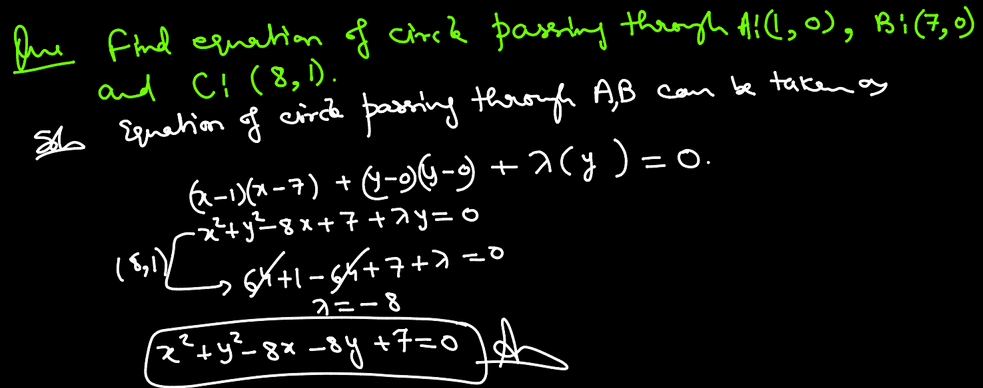 Que Find equation of circle passing through A:(1, 0), B:(7, 0)
and C: (8, 1).
Sol Equation of circle passing through A,B can be taken as
(x-1)(x-7) + (y-0)(y-0) + λ(y) = 0.
x²+y²-8x+7+λy=0
(8,1) 64+1-64+7+λ=0
λ=-8
x²+y²-8x-8y+7=0 Ans